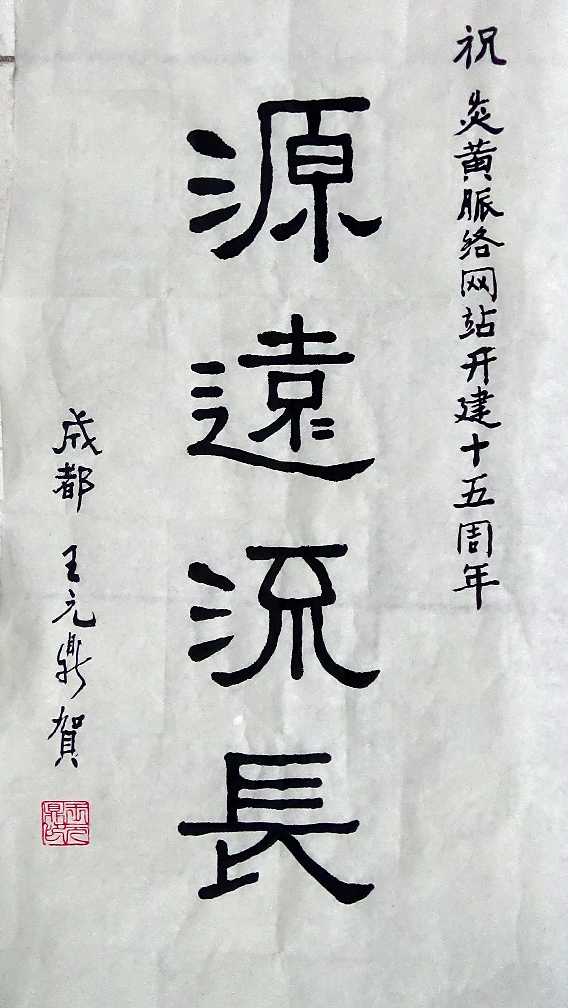 祝 炎黄脈络网站开建十五周年
源遠流長
成都 王元鼎賀